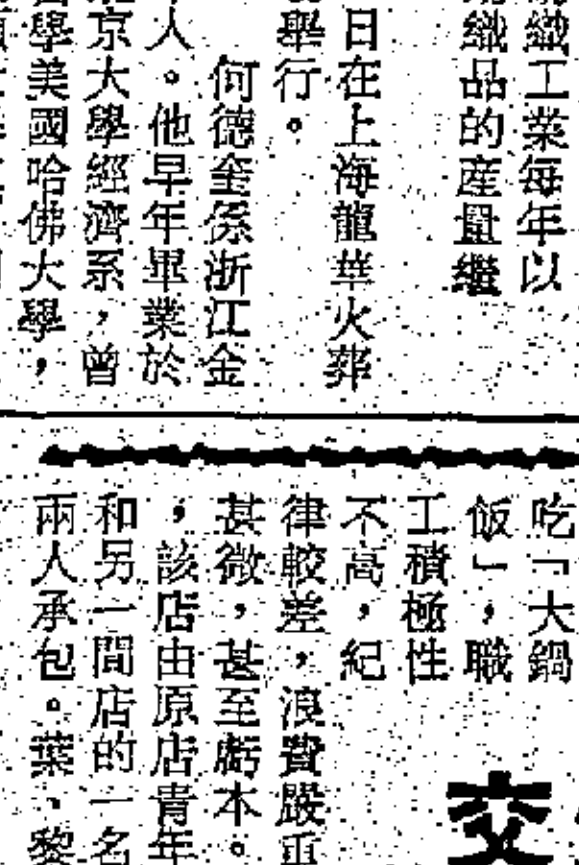 織工業每年以
織品的産量繼
日在上海龍華火葬
舉行。
何德奎係浙江金
人。他早年畢業於
京大學經濟系，曾
學美國哈佛大學，
吃「大鍋
飯」，職
工積極性
不高，紀
律較差，浪費嚴重
甚微，甚至虧本。
，該店由原店青年
和另一間店的一名
兩人承包。葉、黎
交